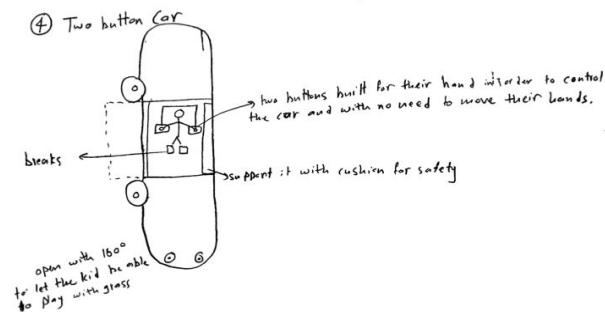 ④ Two button Car
two buttons built for their hand in order to control
the car and with no need to move their hands.
breaks
support it with cushion for safety
open with 160°
to let the kid be able
to play with grass